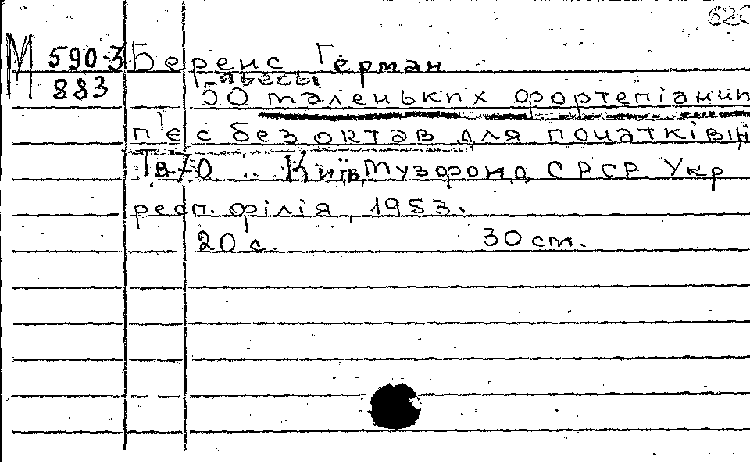 620
М 590-3 Беренс Герман
883 пьесы
50 маленьких фортепіанин
п'єс без октав для початківців
Тв. 70 .. Київ, Музфонд СРСР Укр
респ. філія, 1953.
20 с. 30 см.